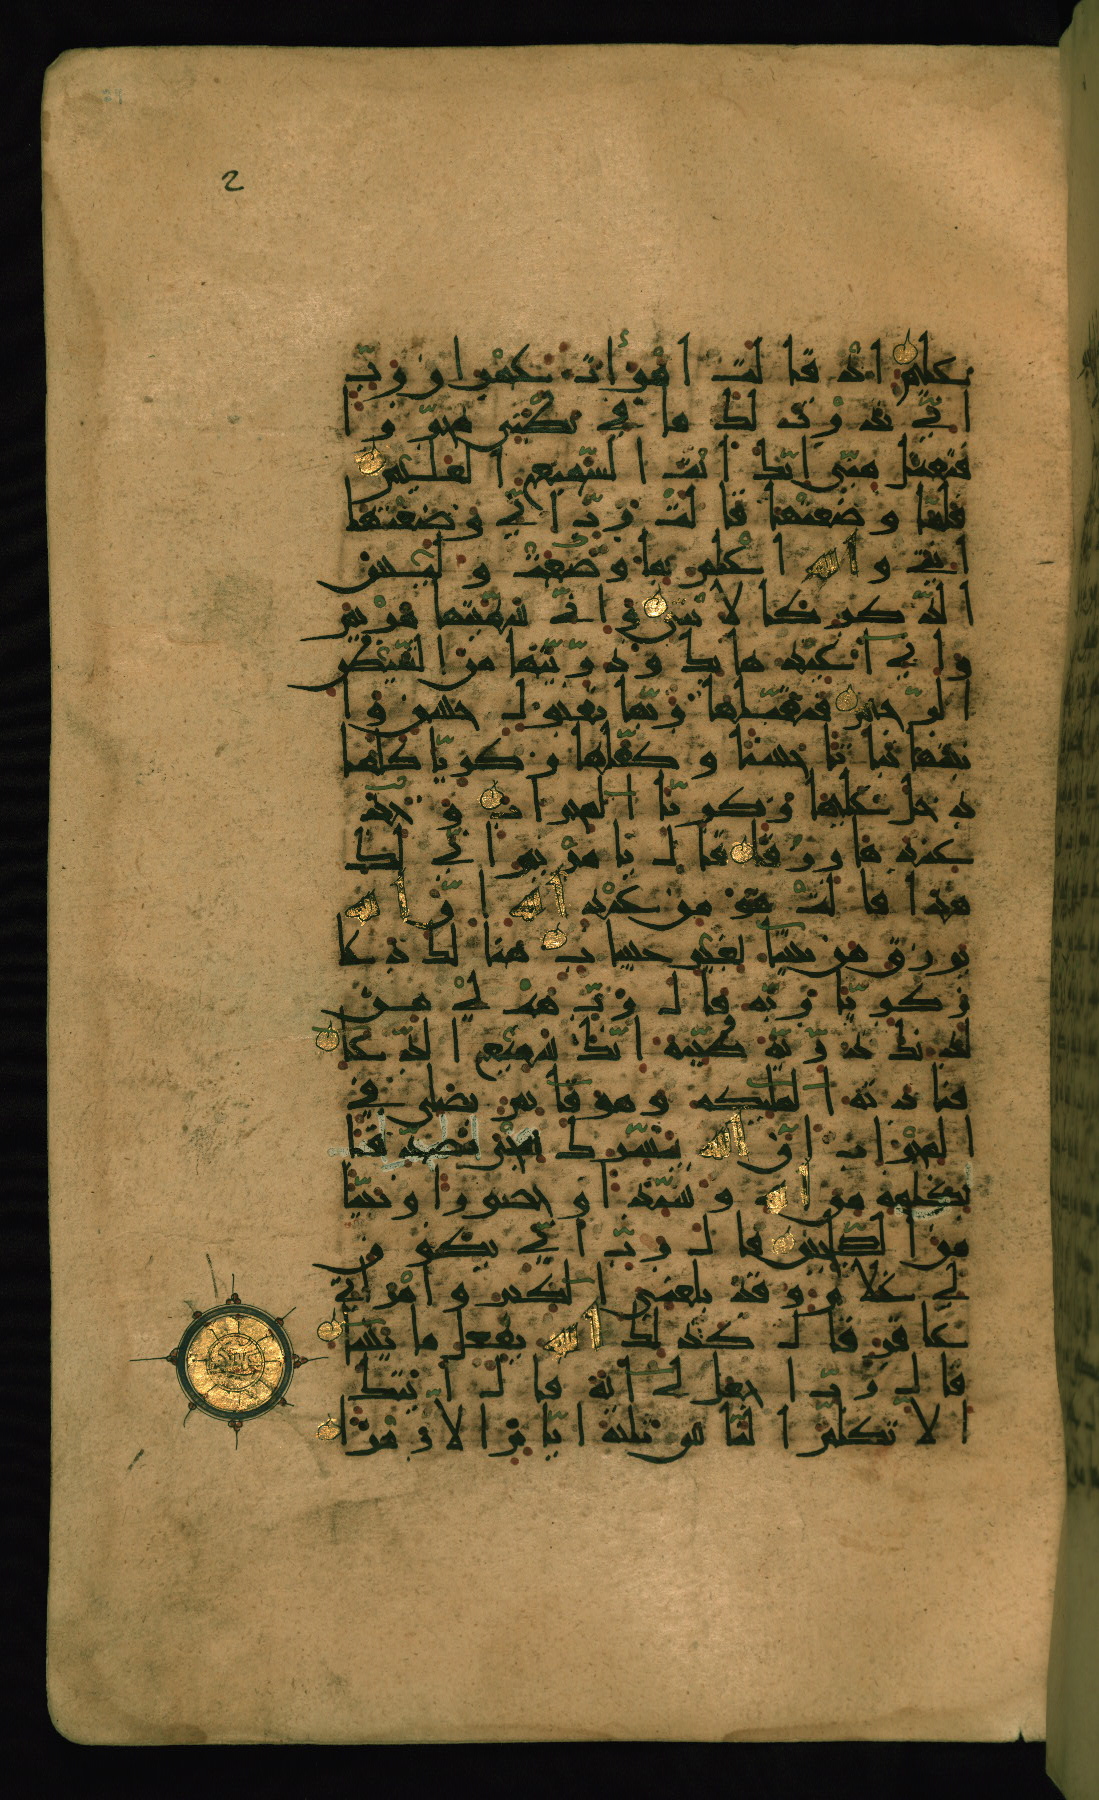 2
عليم اذ قالت امرأت عمران رب
اني نذرت لك ما في بطني محررا
فتقبل مني انك انت السميع العليم
فلما وضعتها قالت رب اني وضعتها
انثى و الله اعلم بما وضعت و ليس
الذكر كالانثى و اني سميتها مريم
و اني اعيذها بك و ذريتها من الشيطن
الرجيم فتقبلها ربها بقبول حسن و ا
نبتها نباتا حسنا و كفلها زكريا كلما
دخل عليها زكريا المحراب وجد
عندها رزقا قال يا مريم انى لك
هذا قالت هو من عند الله ان الله
يرزق من يشا بغير حساب هنالك دعا
زكريا ربه قال رب هب لي من
لدنك ذرية طيبة انك سميع الدعا
فنادته الملئكة و هو قايم يصلي في
المحراب ان الله يبشرك بيحيى مصدقا
بكلمة من الله و سيدا و حصورا و نبيا
من الصلحين قال رب انى يكون
لي غلام و قد بلغني الكبر و امراتي
عاقر قال كذلك الله يفعل ما يشا
قال رب اجعل لي اية قال ايتك
الا تكلم الناس ثلثة ايام الا رمزا